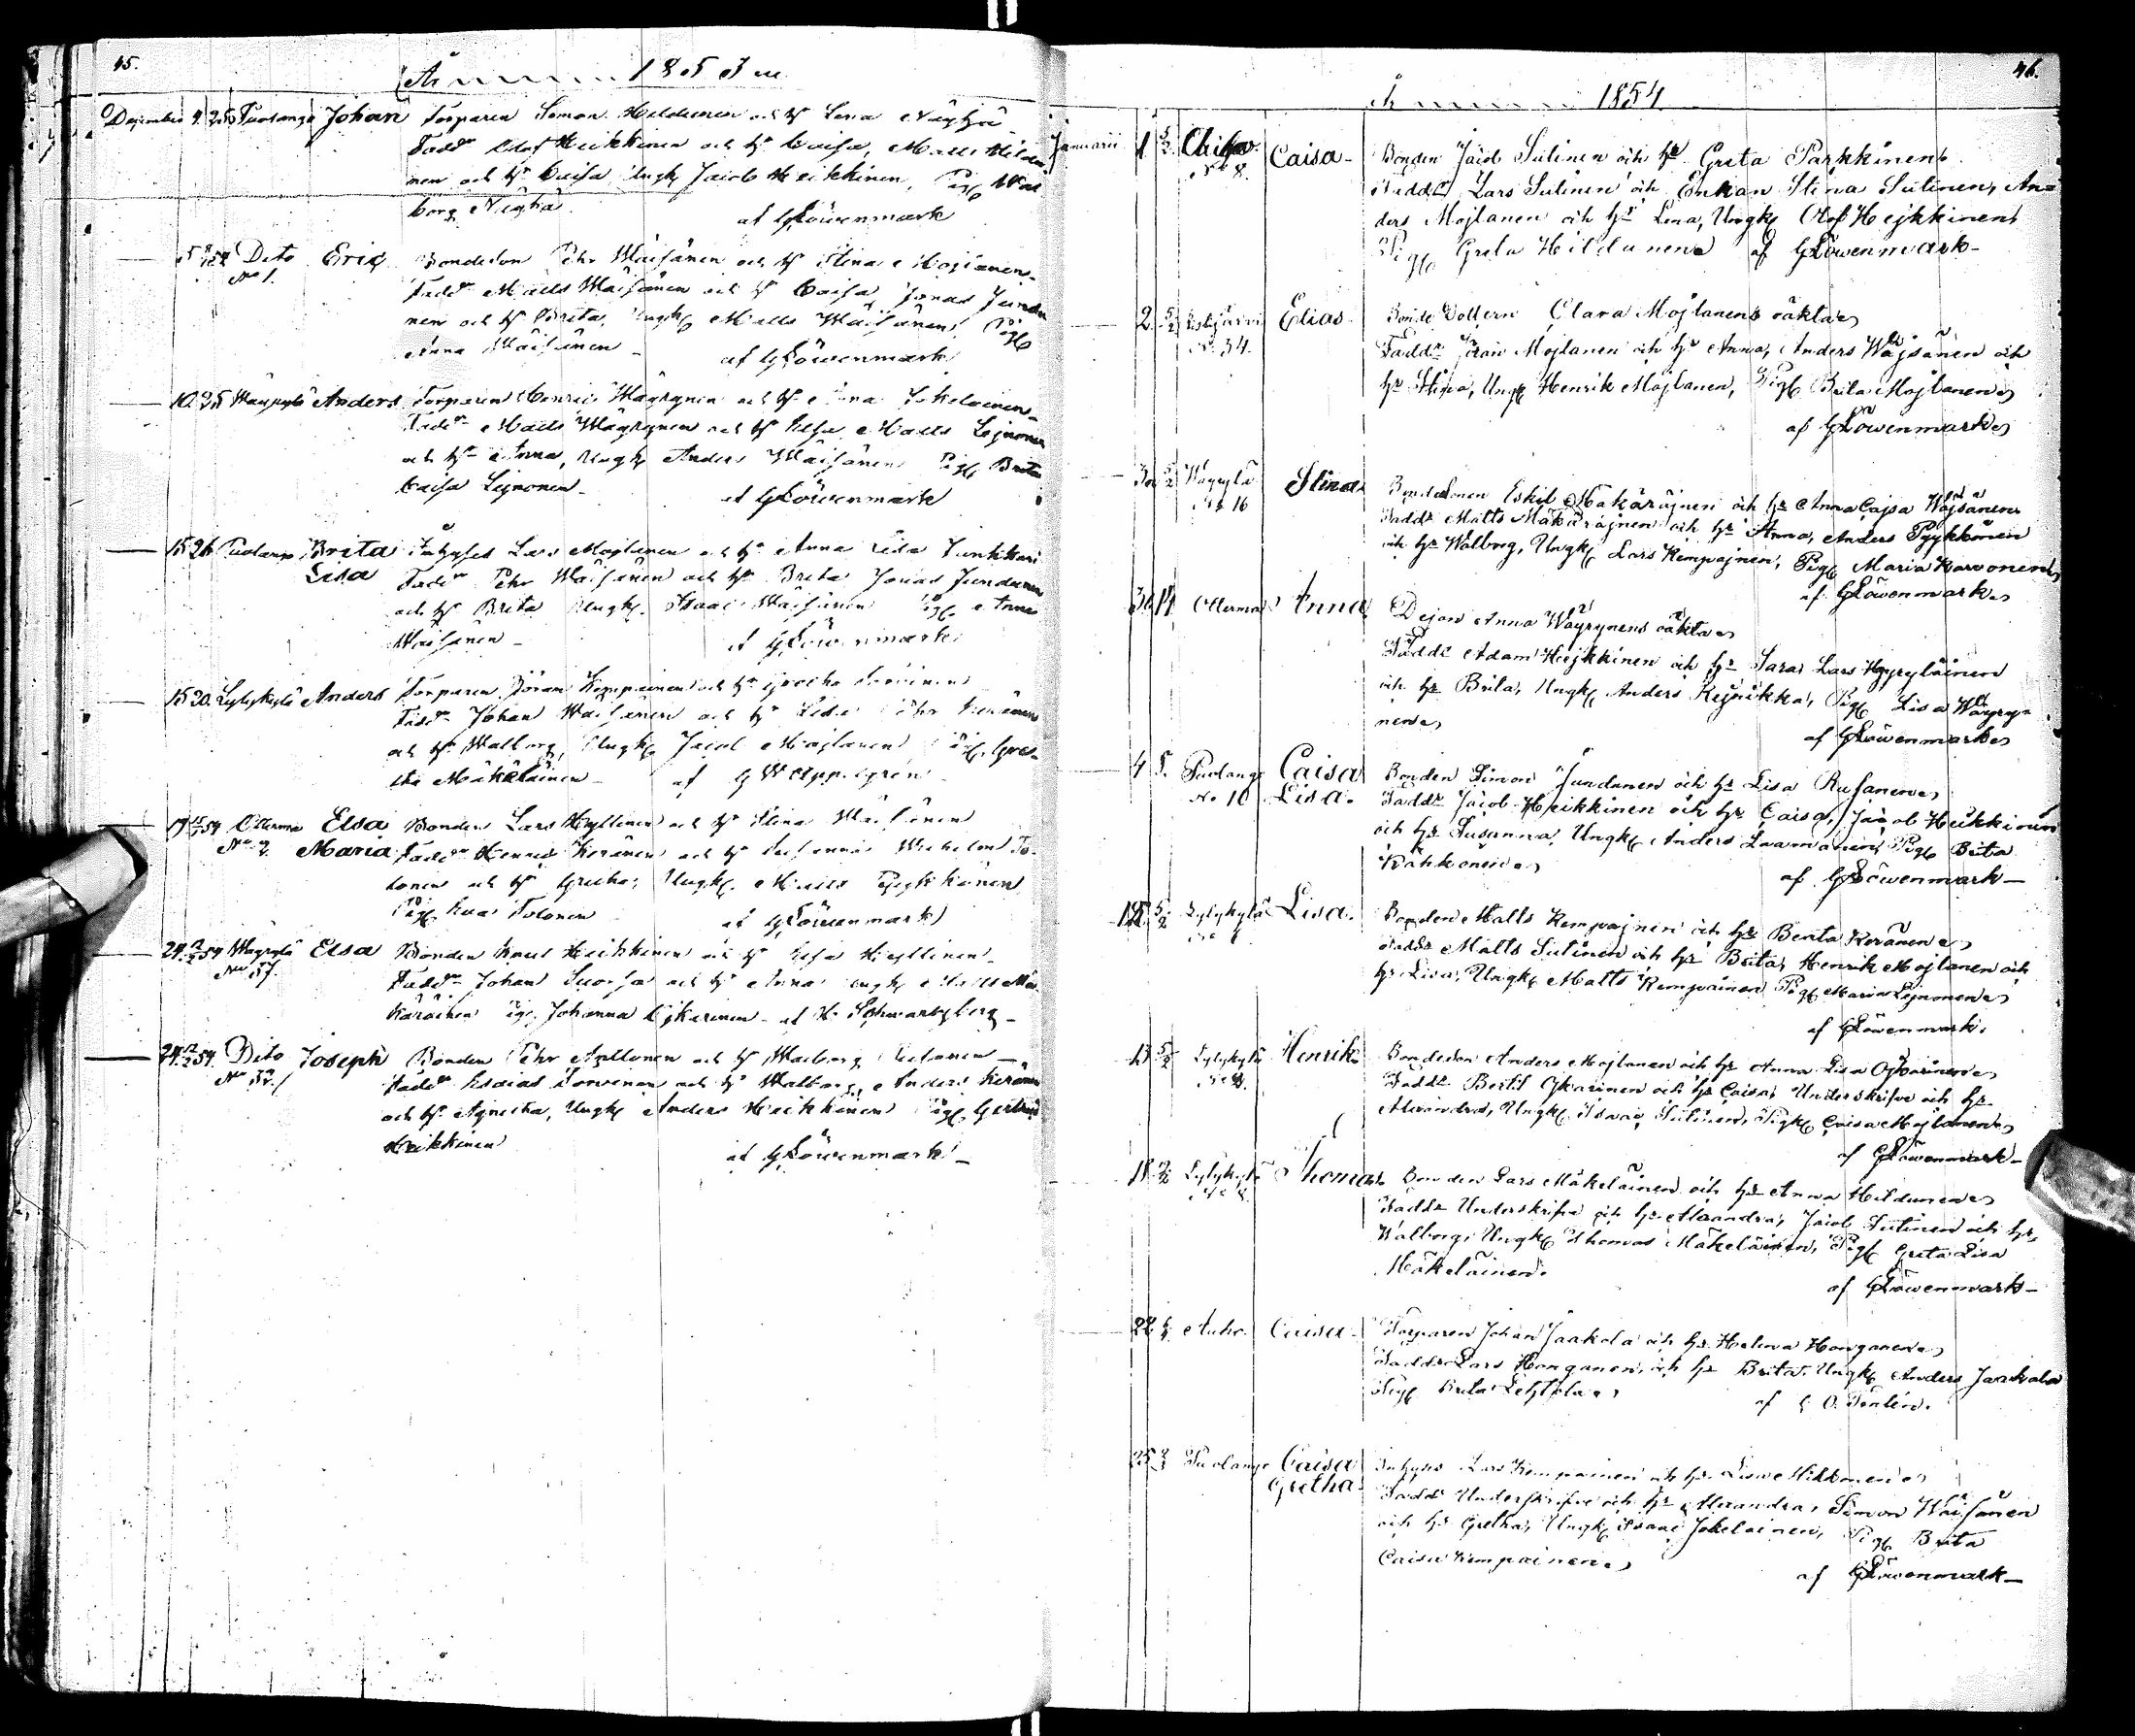 45.
År 1853
December 4. 25 Puolango Johan Torparen Simon Heldunen och h: Lena Näyhjä
Fadd: Olof Heikkinen och h: Caisa, Matts Hildu
nen och h: Caisa Ungk Jacob Heikkinen, Pig: Wal
borg Näyhä. af GLöwenmark
5 Dito Eric Bondeson Pehr Wäisänen och h: Stina Moilanen
No 1. Fadd: Matts Wäisänen och h: Caisa Jonas Jundu
nen och h: Brita, Ungk Matts Wäisänen Pig:
Anna Wäisänen af GLöwenmark
10. 25 Wäyrylä Anders Torparen Henric Wäyrynen och h: Anna Jokelainen
Fadd: Matts Wäyrynen och h: Elsa Matts Lejnonen
och h: Anna, Ungk Anders Wäisänen Pig: Brita
Caisa Lejnonen af GLöwenmark
15 26 Puolango Brita Inhyses Lars Mojlanen och h: Anna Lisa Junkkari
Lisa Fadd: Pehr Wäisänen och h: Brita Jonas Jundunen
och h: Brita Ungk. Isaac Wäisänen Pig: Anna
Wäisänen af GLöwenmark
15 30. Lylykylä Anders Torparen Göran Kempainen och h: Gretha
Fadd: Johan Wäisänen och h: Lisa Pehr Keränen
och h: Walborg, Ungk. Jacob Mojlanen Pig: Gre-
tha Mäkeläinen af G W Appelgrén
19 Otermo Elsa Bonden Lars Kyllönen och h: Stina Wäisänen
No 2. Maria Fadd: Henric Keränen och h: Susanna Wilhelm To-
lonen och h: Gretha, Ungk. Matts Pyykkönen
Pig: Eva Tolonen af GLöwenmark
24. Wäyrylä Elsa Bonden Knut Heikkinen och h: Elsa Kyllinen
No 37. Fadd: Johan Suorsa och h: Anna Ungk Matts Mä-
käräinen Pig: Johanna Ojkarinen af K: Schwartzberg
24. Dito Joseph Bonden Pehr Anttonen och h: Walborg
Fadd: Esaias Torvinen och h: Walborg, Anders Keränen
och h: Agnetha, Ungk Anders Heikkinen Pig: Gertrud
Heikkinen af GLöwenmark
46.
År 1854
Januarii 1 5/2 Caisa Bonden Jacob Sutinen och h: Greta Parkkinen
No 8. Fadd: Lars Sutinen och Enkan Stina Sutinen, An-
ders Mojlanen och h: Lena, Ungk Olof Hejkkinen
Pig: Greta Hildunen af GLöwenmark
2. 5/2 Elias Bonde Dottern Clara Mojlanens oäkta
No 34. Fadd: Göran Mojlanen och h: Anna, Anders Wäjsänen och
h: Stina, Ungk Henrik Mojlanen, Pig: Brita Mojlanen
af GLöwenmark
3. 5/2 Wäyrylä Stina Bondesonen Eskil Mäkäräjnen och h: Anna Cajsa Wäjsänen
No 16 Fadd: Matts Mäkäräjnen och h: Anna, Anders Pyykkönen
och h: Walborg, Ungk Lars Kempajnen, Pig: Maria Karvonen
af GLöwenmark
Otermo Anna Dejan Anna Wäyrynens oäkta
Fadd: Adam Hejkkinen och h: Sara, Lars Hyyryläinen
och h: Brita, Ungk Anders Kejnikka, Pig: Lisa Wäyry-
nen af GLöwenmark
4 5. Puolango Caisa Bonden Simon Jundunen och h: Lisa Rusanen
No 10 Lisa. Fadd: Jacob Heikkinen och h: Caisa, Jacob Heikkinen
och h: Susanna, Ungk Anders Laamanen Pig: Brita
af GLöwenmark
12 5/2 Lylykylä Lisa. Bonden Matts Kempajnen och h: Berta Keränen
Fadd: Matts Sutinen och h: Brita, Henrik Mojlanen och
h: Lisa, Ungk Matts Kempainen Pig: Maria Lejnonen
af GLöwenmark.
13 5/2 Lylykylä Henrik Bondeson Anders Mojlanen och h: Anna Lisa Ojkarinen
Fadd: Bertil Ojkarinen och h: Caisa, Underskrifve och h:
Alexandra, Ungk Isaac Sutinen, Pig: Caisa Mojlanen
af GLöwenmark
18 Lylykylä Thomas Bonden Lars Mäkeläinen och h: Anna Heldunen
Fadd: Underskrifve och h: Alexandra, Jacob Sutinen och h:
Walborg, Ungk Thomas Mäkeläinen, Pig: Greta Lisa
Mäkeläinen.
af GLöwenmark
22 Auho Caisa Torparen Johan Jaakola och h: Helena Honganen
Fadd: Lars Honganen, och h: Brita, Ungk Anders Jaakola
Pig: Brita Lehtola
af
25 Puolango Caisa Inhyses Lars Kempainen och h: Lisa Mikkonen
Gretha Fadd: Underskrifve och h: Alexandra, Simon Wäisänen
och h: Gretha, Ungk Isaac Jokelainen, Pig: Brita
Caisa Kempainen
af GLöwenmark